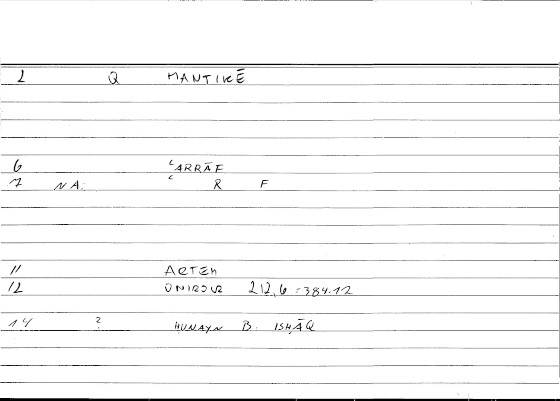 1 Q MANTIKĒ
6 ʿARRĀF
7 NA. ʿ R F
11 ARTEM
12 ONIROCR 212,6 = 384.12
14 ? HUNAYN B. ISHĀQ